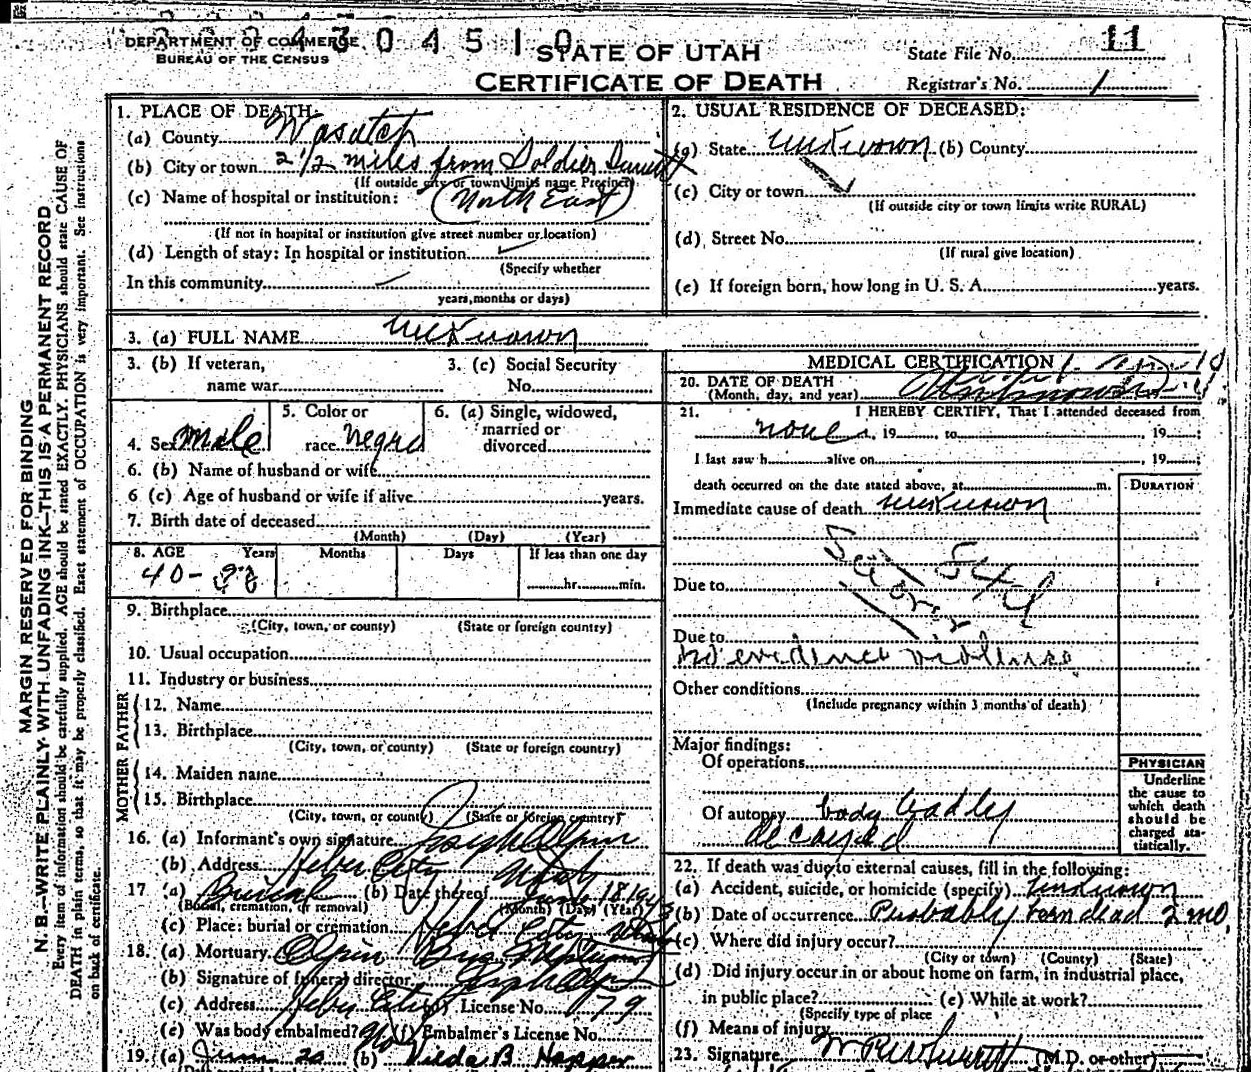 DEPARTMENT OF COMMERCE
BUREAU OF THE CENSUS
3 0 4 5 1 0
STATE OF UTAH
CERTIFICATE OF DEATH
State File No. 11
Registrar's No. 1
MARGIN RESERVED FOR BINDING
N. B.—WRITE PLAINLY WITH UNFADING INK—THIS IS A PERMANENT RECORD
Every item of information should be carefully supplied. AGE should be stated EXACTLY. PHYSICIANS should state CAUSE OF
DEATH in plain terms, so that it may be properly classified. Exact statement of OCCUPATION is very important. See instructions
on back of certificate.
1. PLACE OF DEATH:
(a) County Wasatch
(b) City or town 2 1/2 miles from Soldier Summit
(If outside city or town limits name Precinct)
(c) Name of hospital or institution: (North East)
(If not in hospital or institution give street number or location)
(d) Length of stay: In hospital or institution
(Specify whether
In this community
years, months or days)
2. USUAL RESIDENCE OF DECEASED:
(a) State unknown (b) County
(c) City or town
(If outside city or town limits write RURAL)
(d) Street No.
(If rural give location)
(e) If foreign born, how long in U. S. A. years.
3. (a) FULL NAME unknown
3. (b) If veteran, name war
3. (c) Social Security No.
4. Sex male
5. Color or race negro
6. (a) Single, widowed, married or divorced
6. (b) Name of husband or wife
6 (c) Age of husband or wife if alive years.
7. Birth date of deceased
(Month) (Day) (Year)
8. AGE Years Months Days If less than one day
40- hr. min.
9. Birthplace
(City, town, or county) (State or foreign country)
10. Usual occupation
11. Industry or business
FATHER
12. Name
13. Birthplace
(City, town, or county) (State or foreign country)
MOTHER
14. Maiden name
15. Birthplace
(City, town, or county) (State or foreign country)
16. (a) Informant's own signature Joseph Olpin
(b) Address Heber City Utah
17 (a) Burial (b) Date thereof June 18 1943
(Burial, cremation, or removal) (Month) (Day) (Year)
(c) Place: burial or cremation Heber City Utah
18. (a) Mortuary Olpin Bros Mortuary
(b) Signature of funeral director Joseph Olpin
(c) Address Heber City License No. 79
(e) Was body embalmed? no (f) Embalmer's License No.
19. (a) June 20 (b) Hilda B. Hopper
MEDICAL CERTIFICATION
20. DATE OF DEATH
(Month, day, and year) Unknown
21. I HEREBY CERTIFY, That I attended deceased from
none, 19 to , 19 ;
I last saw h alive on , 19 ;
death occurred on the date stated above, at m.
DURATION
Immediate cause of death unknown
Due to
Due to
no evidence violence
Other conditions
(Include pregnancy within 3 months of death)
Major findings:
Of operations
Of autopsy body badly
decayed
PHYSICIAN
Underline
the cause to
which death
should be
charged sta-
tistically.
22. If death was due to external causes, fill in the following:
(a) Accident, suicide, or homicide (specify) unknown
(b) Date of occurrence Probably been dead 2 mo.
(c) Where did injury occur?
(City or town) (County) (State)
(d) Did injury occur in or about home on farm, in industrial place,
in public place? (e) While at work?
(Specify type of place
(f) Means of injury
23. Signature (M.D. or other)